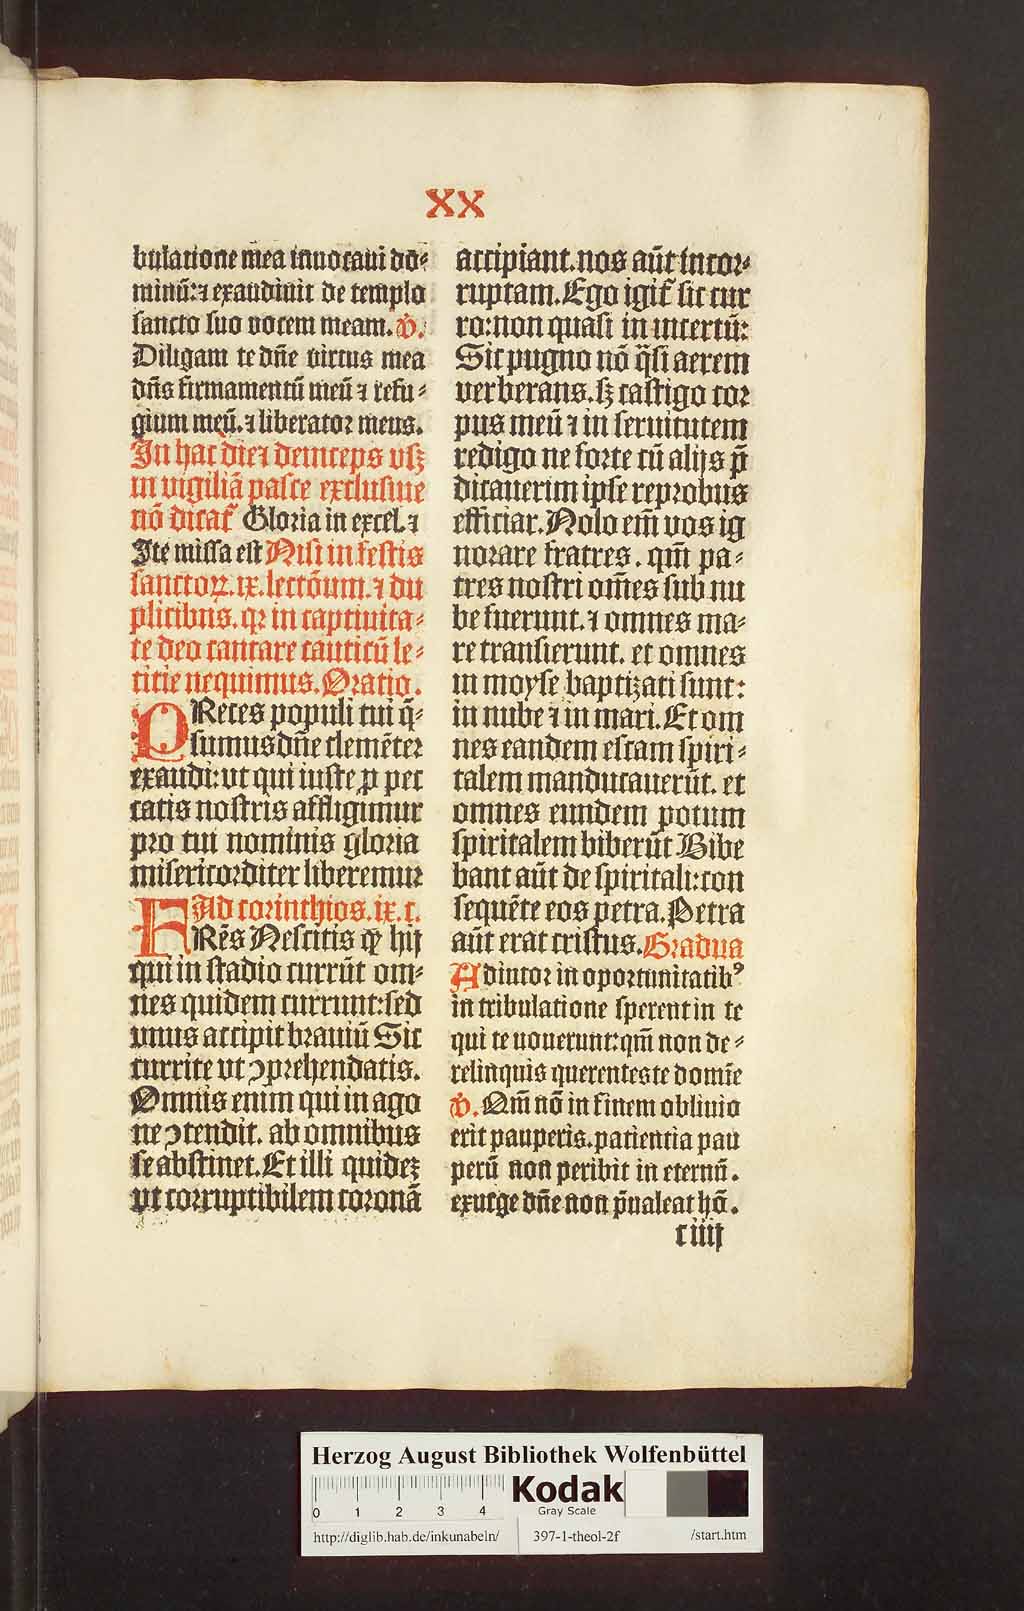 XX
bulatione mea inuocaui do⸗
minū:⁊ exaudiuit de templo
sancto suo vocem meam. ℣.
Diligam te dn̄e virtus mea
dn̄s firmamentū meū ⁊ refu⸗
gium meū. ⁊ liberator meus.
In hac die ⁊ deinceps vsꝫ
in vigiliā pasce exclusiue
nō dicat᷑ Gloria in excel. ⁊
Ite missa est Nisi in festis
sanctoꝝ. ix. lectōnum. ⁊ du
plicibus. qꝛ in captiuita⸗
te deo cantare canticū le⸗
titie nequimus. Oratio.
PReces populi tui q̄⸗
sumus dn̄e clemēter
exaudi: vt qui iuste ꝓ pec
catis nostris affligimur
pro tui nominis gloria
misericorditer liberemur
Ad corinthios. ix. c.
FRēs Nescitis ꝙ hij
qui in stadio currūt om⸗
nes quidem currunt: sed
vnus accipit brauiū Sic
currite vt ↄprehendatis.
Omnis enim qui in ago
ne ↄtendit. ab omnibus
se abstinet. Et illi quideꝫ
vt corruptibilem coronā
accipiant. nos aūt incor⸗
ruptam. Ego igit᷑ sic cur
ro: non quasi in incertū:
Sic pugno nō q̄si aerem
verberans. sꝫ castigo cor
pus meū ⁊ in seruitutem
redigo ne forte cū alijs p̄
dicauerim ipse reprobus
efficiar. Nolo em̄ vos ig
norare fratres. qm̄ pa⸗
tres nostri om̄es sub nu
be fuerunt. ⁊ omnes ma⸗
re transierunt. et omnes
in moyse baptizati sunt:
in nube ⁊ in mari. Et om
nes eandem escam spiri⸗
talem manducauerūt. et
omnes eundem potum
spiritalem biberūt Bibe
bant aūt de spiritali: con
sequēte eos petra. Petra
aūt erat cristus. Gradua
Adiutor in oportunitatibꝰ
in tribulatione sperent in te
qui te nouerunt: qm̄ non de⸗
relinquis querentes te domīe
℣. Qm̄ nō in finem obliuio
erit pauperis. patientia pau
perū non peribit in eternū.
exurge dn̄e non p̄ualeat hō.
ciiij
Herzog August Bibliothek Wolfenbüttel
0 1 2 3 4
Kodak
Gray Scale
http://diglib.hab.de/inkunabeln/ 397-1-theol-2f /start.htm